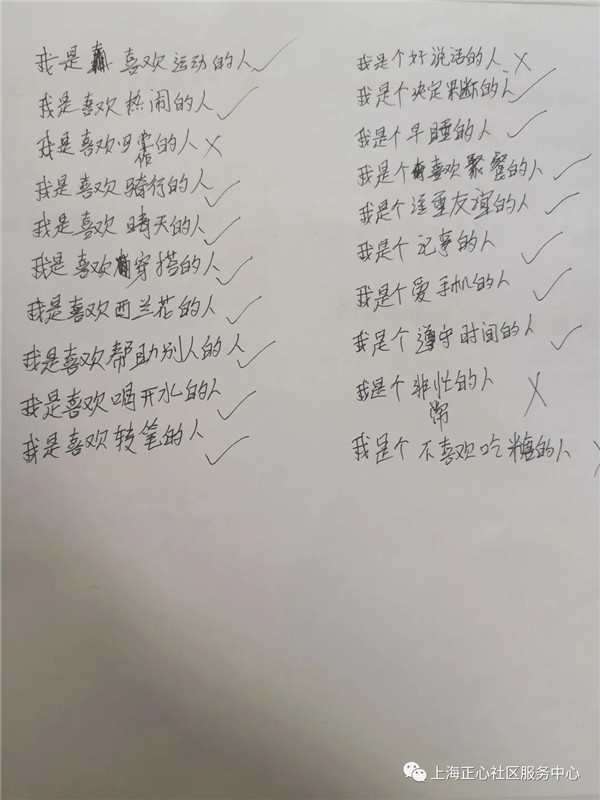 我是喜欢运动的人✓
我是喜欢热闹的人✓
我是喜欢的人×
我是喜欢骑行的人✓
我是喜欢晴天的人✓
我是喜欢穿搭的人✓
我是喜欢西兰花的人✓
我是喜欢帮助别人的人✓
我是喜欢喝开水的人✓
我是喜欢转笔的人✓
我是个好说话的人×
我是个决定果断的人✓
我是个早睡的人✓
我是个喜欢聚餐的人✓
我是个注重友谊的人✓
我是个记事的人✓
我是个爱手机的人✓
我是个遵守时间的人✓
我是个非的人×
我是个不喜欢吃糖的人×
上海正心社区服务中心